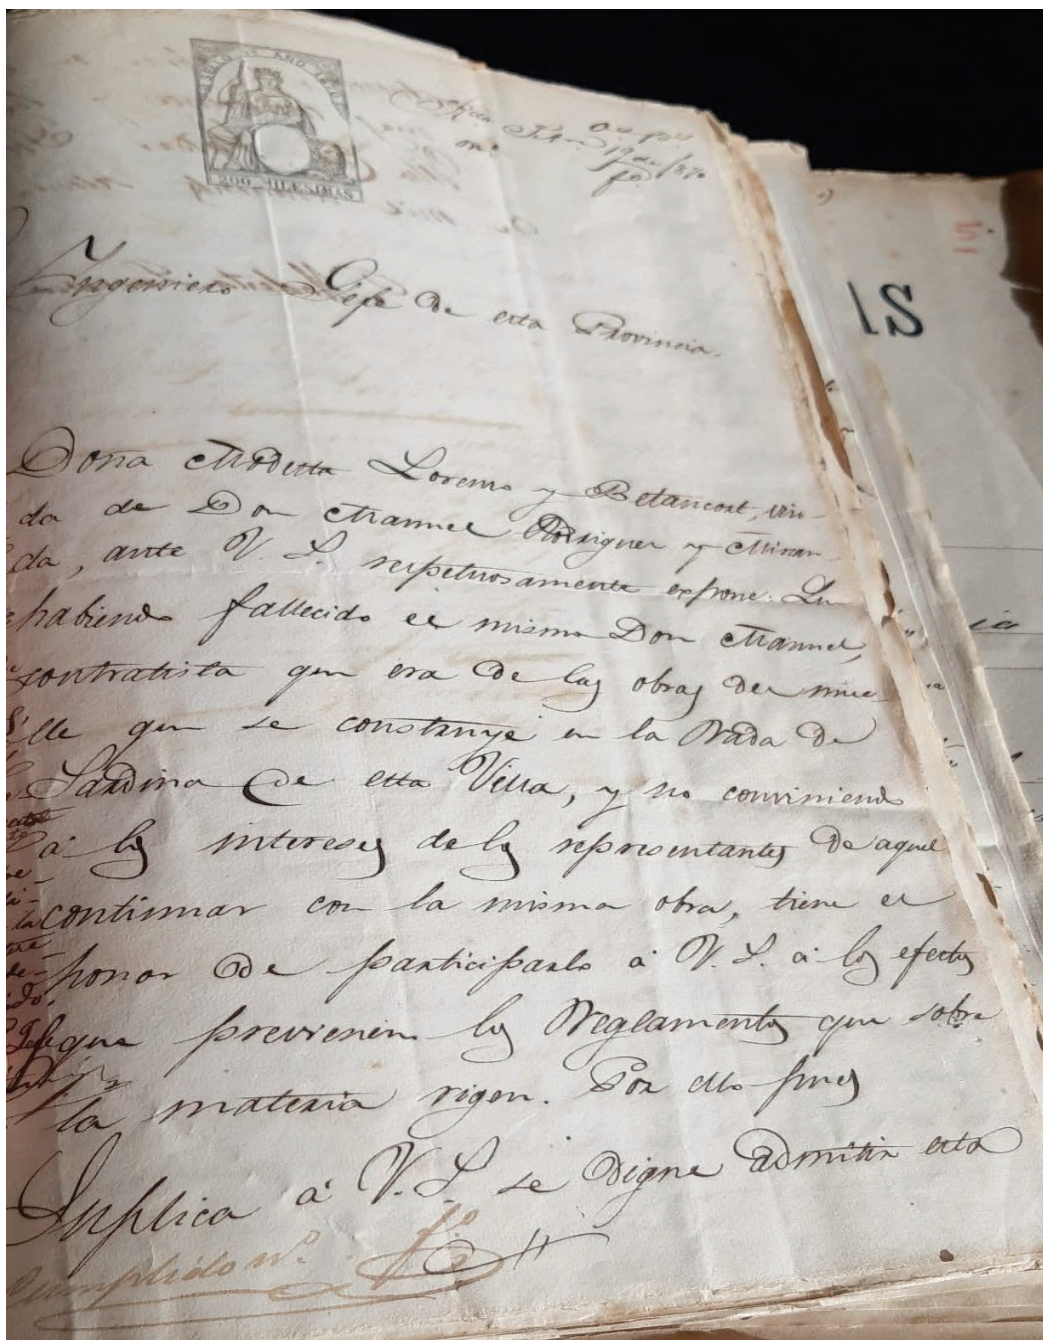 SELLO 1º AÑO 1870
200 MILESIMAS
1870
Ingeniero Gefe de esta Provincia.
Doña Modesta Lorenzo y Betancort, viu-
da de Don Manuel Rodriguez y Miran-
da, ante V. S. respetuosamente expone: Qu
habiendo fallecido el mismo Don Manuel,
contratista que era de las obras del mue-
lle que se construye en la Rada de
Sardina de esta Villa, y no conviniendo
á los intereses de los representantes de aquel
continuar con la misma obra, tiene el
honor de participarlo á V. S. á los efectos
que previenen los Reglamentos que sobre
la materia rigen. Por ello pues
Suplica á V. S. se digne admitir esta
Cumplido nº
AS